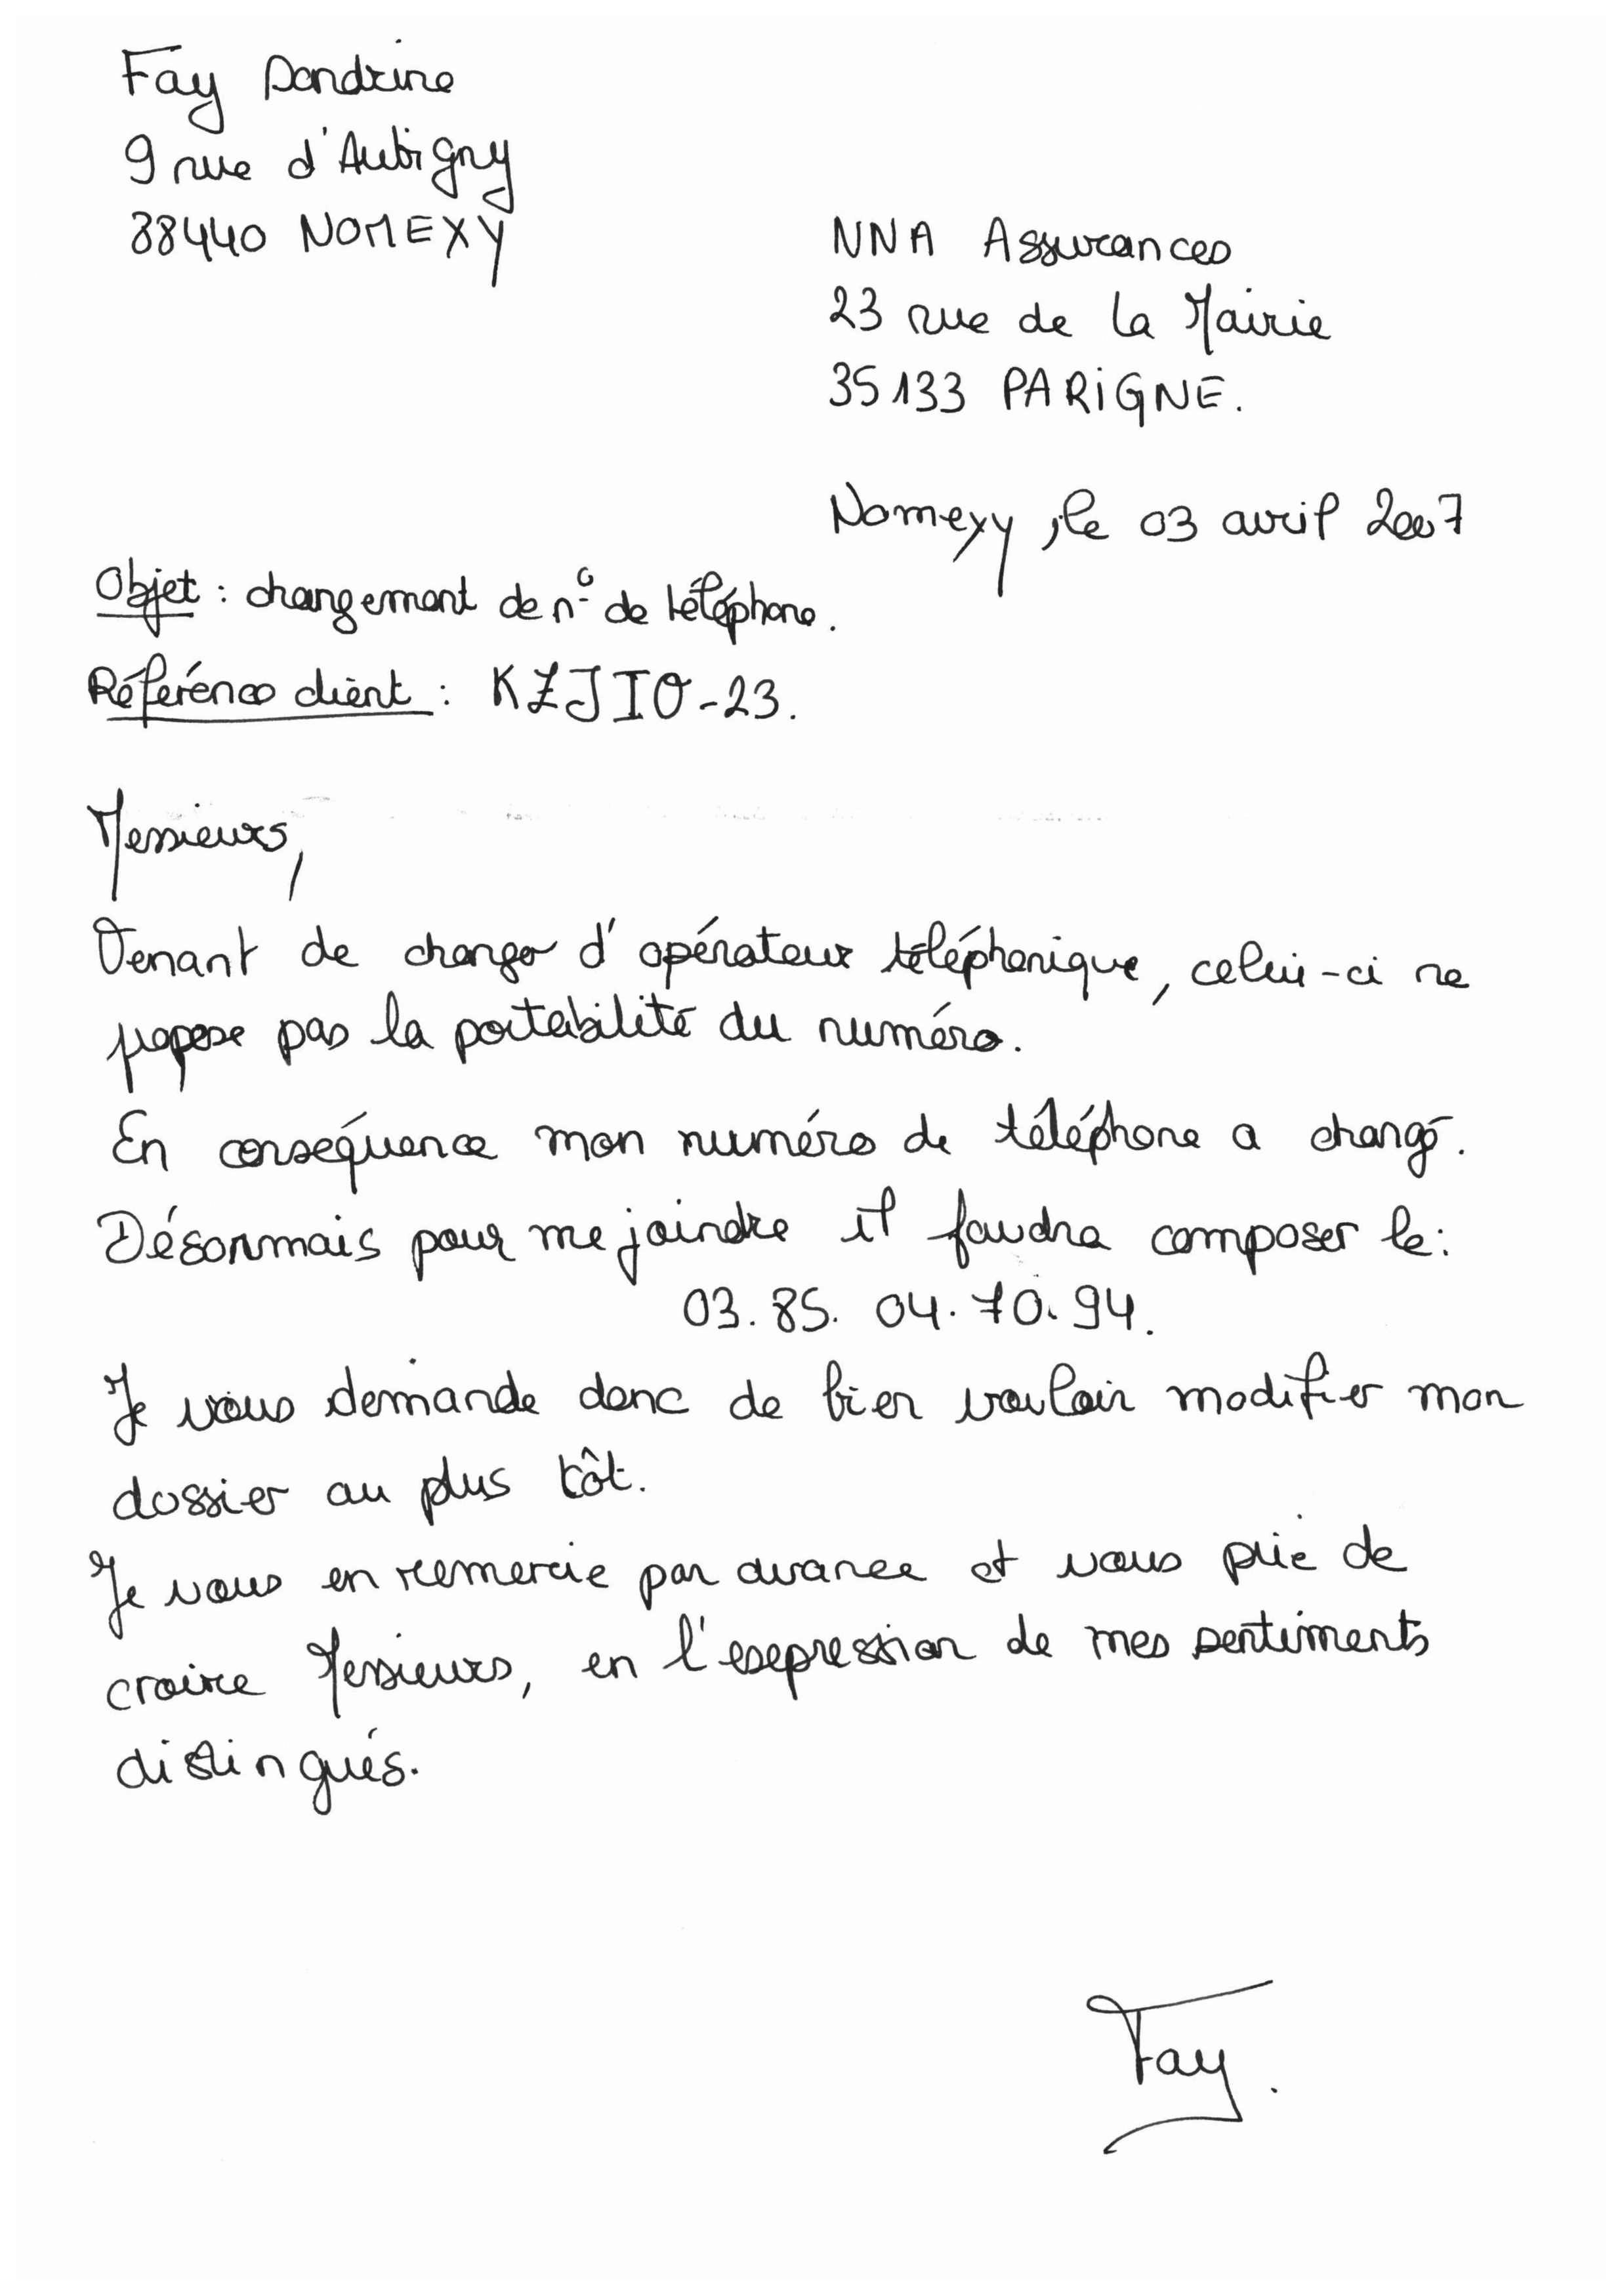 Fay Sandrine
9 rue d'Aubigny
88440 NOMEXY
NNA Assurances
23 rue de la Mairie
35133 PARIGNE.
Nomexy, le 03 avril 2007
Objet : changement de n° de téléphone.
Référence client : KZJIO-23.
Messieurs,
Venant de changer d'opérateur téléphonique, celui-ci ne
propose pas la portabilité du numéro.
En conséquence mon numéro de téléphone a changé.
Désormais pour me joindre il faudra composer le :
03.85.04.70.94.
Je vous demande donc de bien vouloir modifier mon
dossier au plus tôt.
Je vous en remercie par avance et vous prie de
croire Messieurs, en l'expression de mes sentiments
distingués.
Fay.